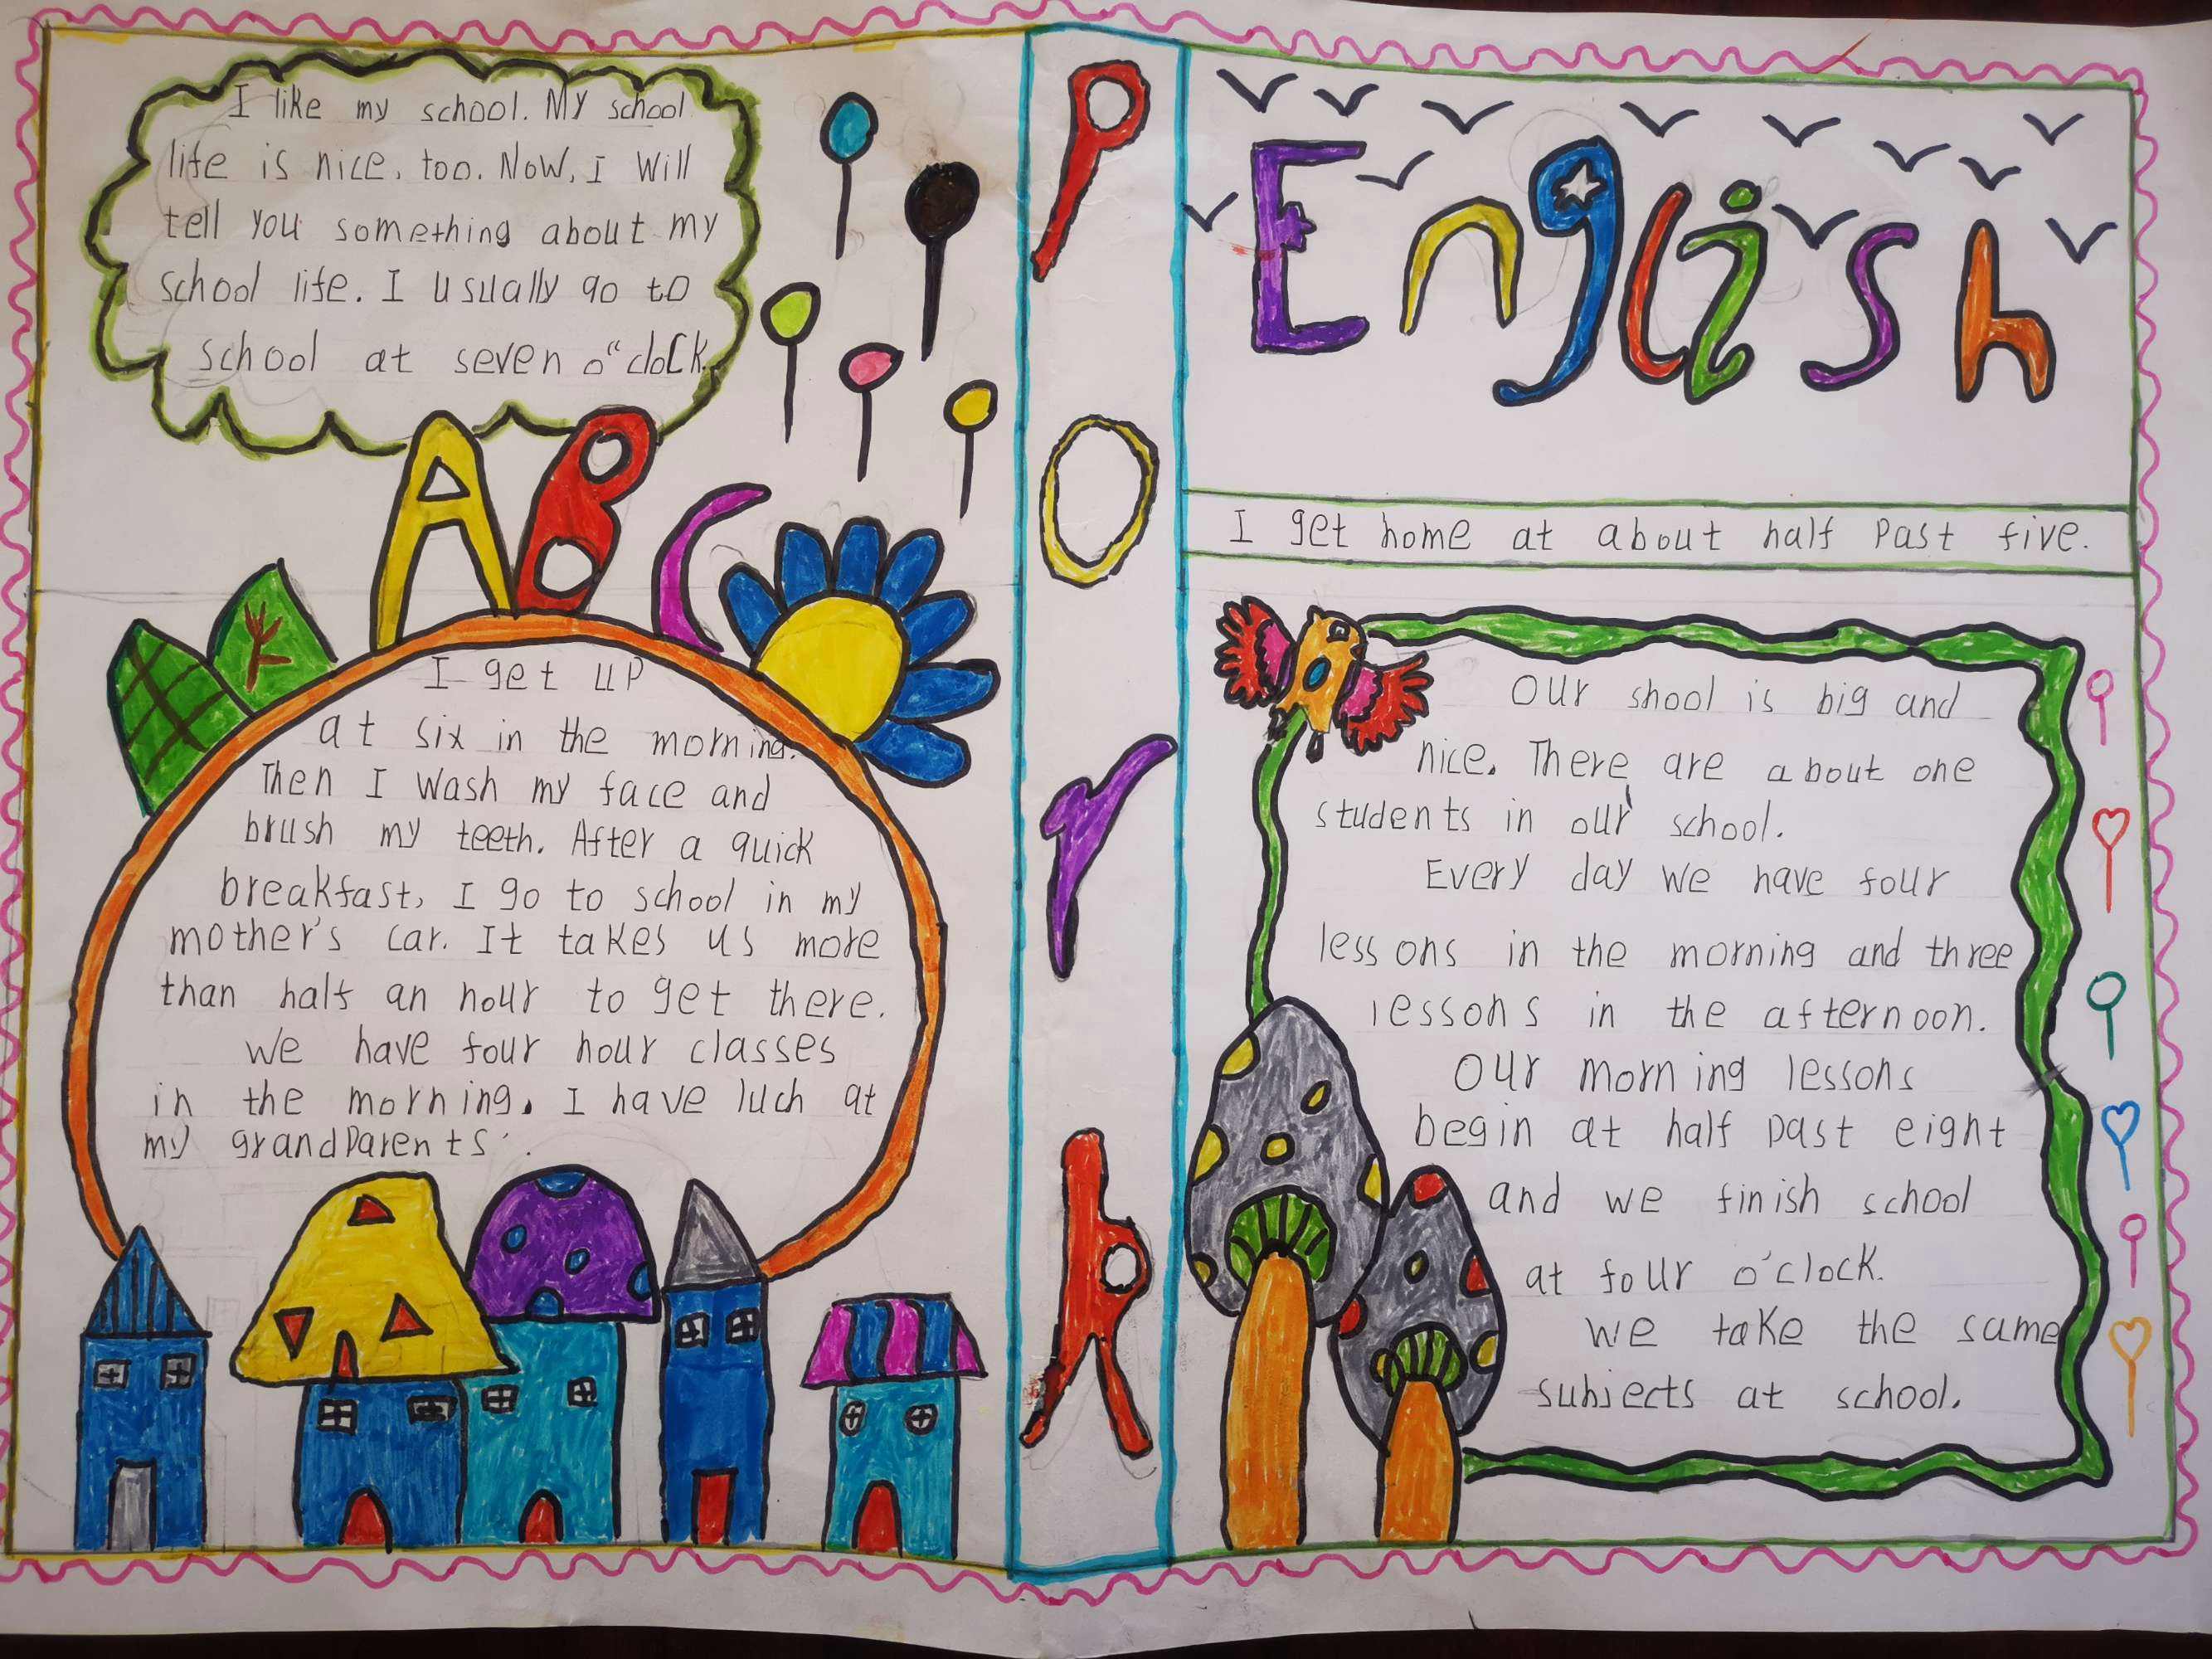 I like my school. My school
life is nice, too. Now, I will
tell you something about my
school life. I usually go to
school at seven o"clock.
ABC
I get up
at six in the morning.
Then I wash my face and
brush my teeth. After a quick
breakfast, I go to school in my
mother's car. It takes us more
than half an hour to get there.
We have four hour classes
in the morning. I have luch at
my grandparents'.
Pork
English
I get home at about half past five.
Our shool is big and
nice. There are about one
students in our school.
Every day we have four
lessons in the morning and three
lessons in the afternoon.
Our morning lessons
begin at half past eight
and we finish school
at four o'clock.
We take the same
subjects at school.